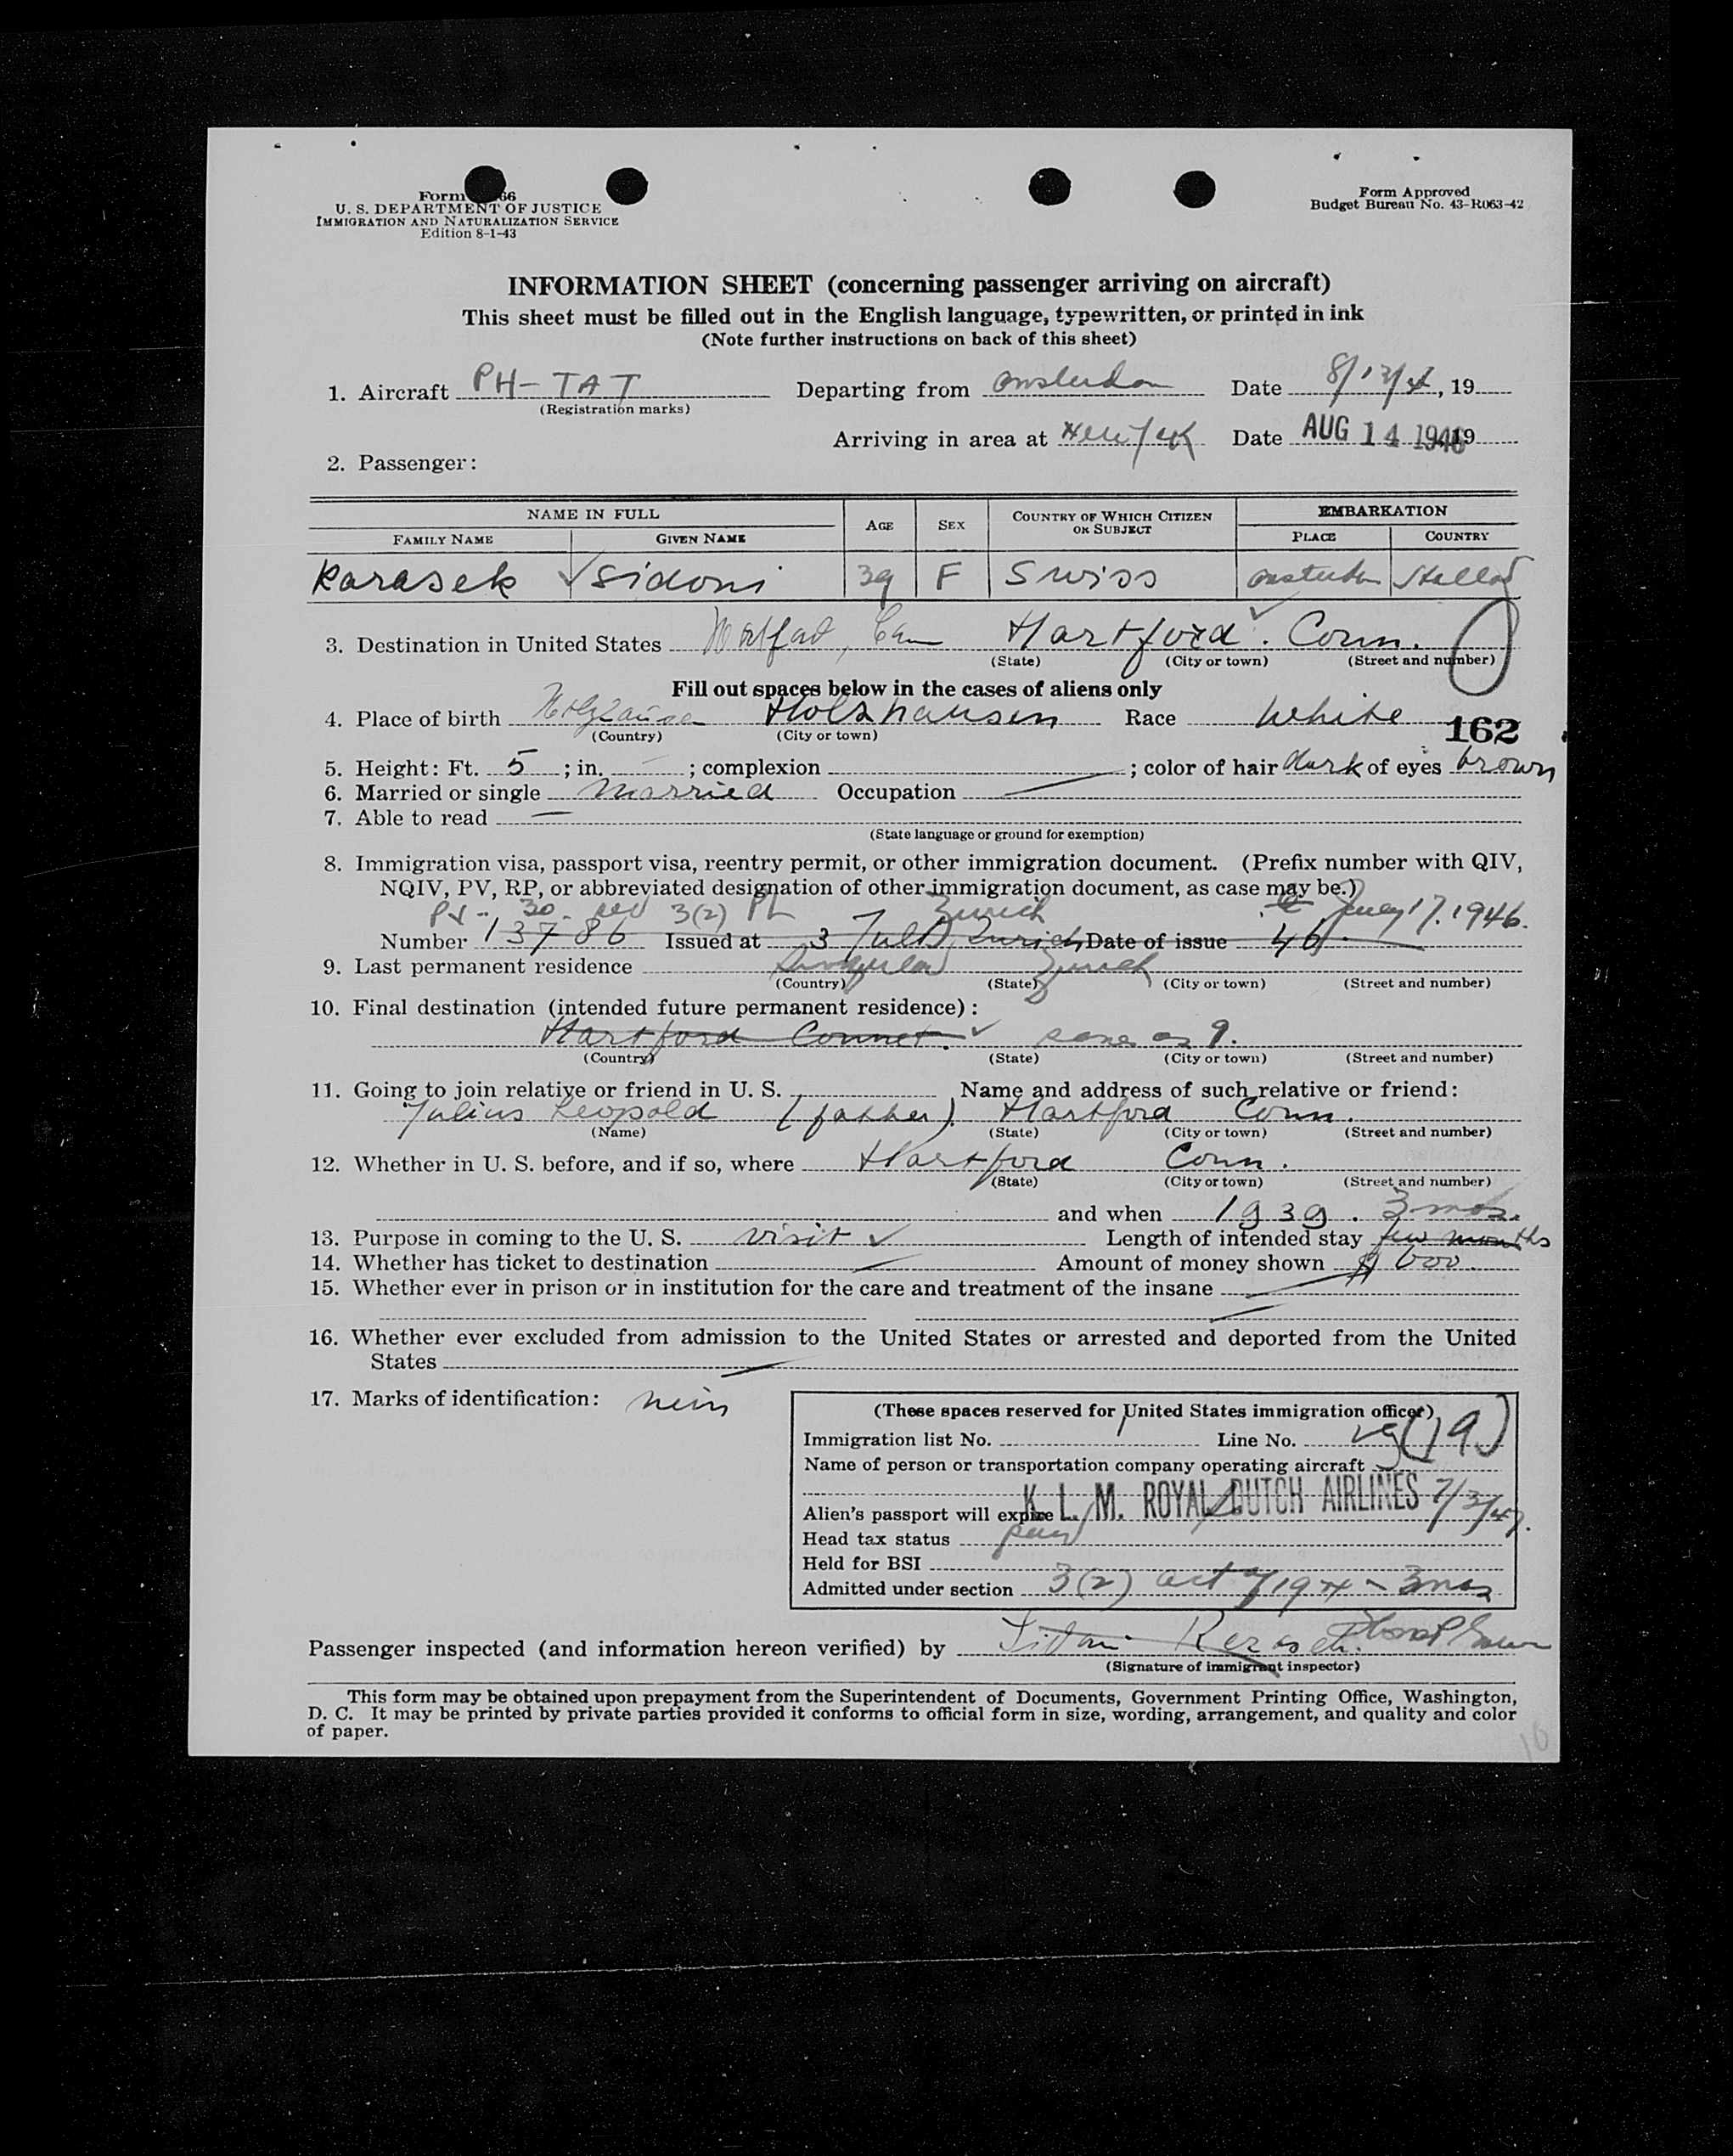 Form 66
U. S. DEPARTMENT OF JUSTICE
IMMIGRATION AND NATURALIZATION SERVICE
Edition 8-1-43
Form Approved
Budget Bureau No. 43-R063-42
INFORMATION SHEET (concerning passenger arriving on aircraft)
This sheet must be filled out in the English language, typewritten, or printed in ink
(Note further instructions on back of this sheet)
1. Aircraft PH-TAT Departing from Amsterdam Date , 19
(Registration marks)
Arriving in area at New York Date AUG 14 1946 19
2. Passenger:
NAME IN FULL AGE SEX COUNTRY OF WHICH CITIZEN OR SUBJECT EMBARKATION
FAMILY NAME GIVEN NAME PLACE COUNTRY
Karasek Sidoni 39 F Swiss Amsterdam Holland
3. Destination in United States Hartford. Conn.
(State) (City or town) (Street and number)
Fill out spaces below in the cases of aliens only
4. Place of birth Holzhausen Race White
(Country) (City or town)
162
5. Height: Ft. 5 ; in. – ; complexion ; color of hair dark of eyes brown
6. Married or single Married Occupation
7. Able to read
(State language or ground for exemption)
8. Immigration visa, passport visa, reentry permit, or other immigration document. (Prefix number with QIV,
NQIV, PV, RP, or abbreviated designation of other immigration document, as case may be.)
PV- 30 3(2) Zurich July 17. 1946.
Number 13786 Issued at 3 Juli Zurich Date of issue 46.
9. Last permanent residence Zurich
(Country) (State) (City or town) (Street and number)
10. Final destination (intended future permanent residence):
Hartford Connet. same as 9.
(Country) (State) (City or town) (Street and number)
11. Going to join relative or friend in U. S. Name and address of such relative or friend:
Julius Leopold (father). Hartford Conn.
(Name) (State) (City or town) (Street and number)
12. Whether in U. S. before, and if so, where Hartford Conn.
(State) (City or town) (Street and number)
and when 1939. 3 mos.
13. Purpose in coming to the U. S. visit Length of intended stay few months
14. Whether has ticket to destination Amount of money shown $ 600.
15. Whether ever in prison or in institution for the care and treatment of the insane
16. Whether ever excluded from admission to the United States or arrested and deported from the United
States
17. Marks of identification: nein
(These spaces reserved for United States immigration officer)
Immigration list No. Line No. (19)
Name of person or transportation company operating aircraft
K. L. M. ROYAL DUTCH AIRLINES
Alien's passport will expire 7/3/47.
Head tax status
Held for BSI
Admitted under section 3(2) act of 1924 - 3 mos
Passenger inspected (and information hereon verified) by Sidoni Karasek.
(Signature of immigrant inspector)
This form may be obtained upon prepayment from the Superintendent of Documents, Government Printing Office, Washington,
D. C. It may be printed by private parties provided it conforms to official form in size, wording, arrangement, and quality and color
of paper.